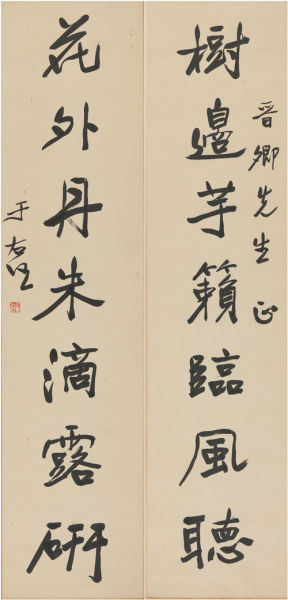 晋卿先生正
樹邊竽籟臨風聽
花外丹朱滴露研
于右任